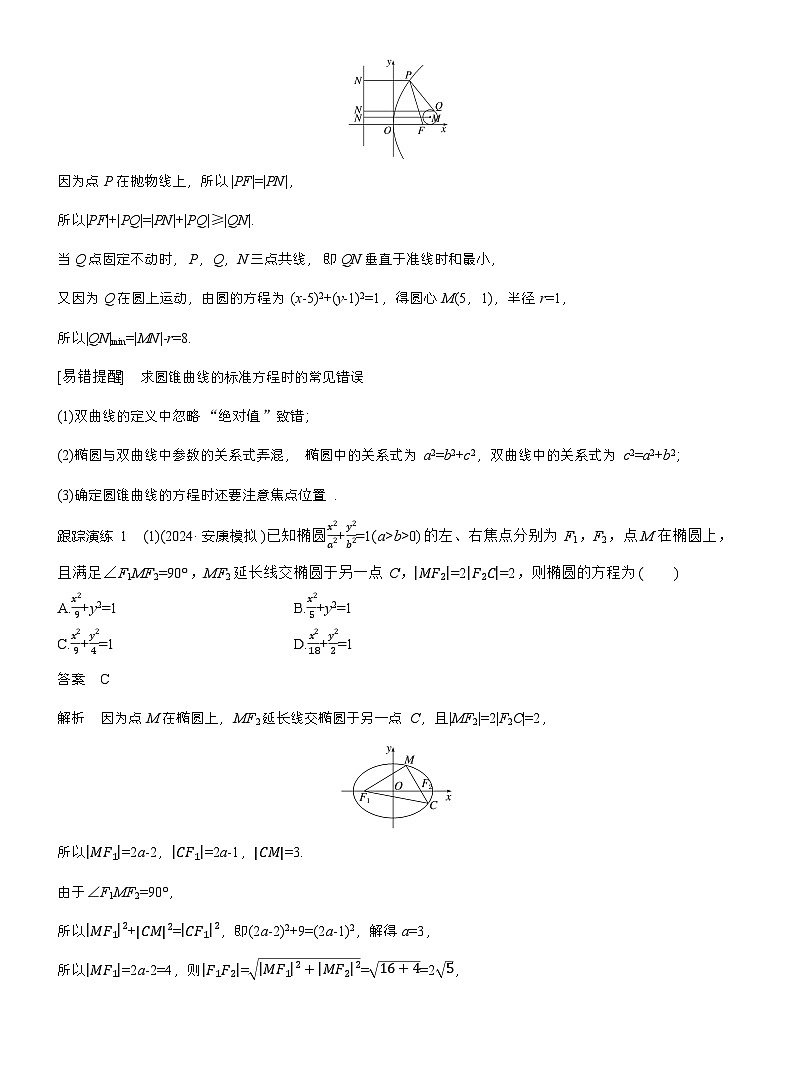 y
N
P
N
Q
N
M
O
F
x
因为点P在抛物线上，所以|PF|=|PN|，
所以|PF|+|PQ|=|PN|+|PQ|≥|QN|.
当Q点固定不动时，P，Q，N三点共线，即QN垂直于准线时和最小，
又因为Q在圆上运动，由圆的方程为(x-5)²+(y-1)²=1，得圆心M(5，1)，半径r=1，
所以|QN|min=|MN|-r=8.
[易错提醒] 求圆锥曲线的标准方程时的常见错误
(1)双曲线的定义中忽略“绝对值”致错；
(2)椭圆与双曲线中参数的关系式弄混，椭圆中的关系式为a²=b²+c²，双曲线中的关系式为c²=a²+b²；
(3)确定圆锥曲线的方程时还要注意焦点位置.
跟踪演练1 (1)(2024·安康模拟)已知椭圆x²/a²+y²/b²=1(a>b>0)的左、右焦点分别为F₁，F₂，点M在椭圆上，
且满足∠F₁MF₂=90°，MF₂延长线交椭圆于另一点C，|MF₂|=2|F₂C|=2，则椭圆的方程为( )
A.x²/9+y²=1 B.x²/5+y²=1
C.x²/9+y²/4=1 D.x²/18+y²/2=1
答案 C
解析 因为点M在椭圆上，MF₂延长线交椭圆于另一点C，且|MF₂|=2|F₂C|=2，
y
M
O
F₂
F₁
x
C
所以|MF₁|=2a-2，|CF₁|=2a-1，|CM|=3.
由于∠F₁MF₂=90°，
所以|MF₁|²+|CM|²=|CF₁|²，即(2a-2)²+9=(2a-1)²，解得a=3，
所以|MF₁|=2a-2=4，则|F₁F₂|=√(|MF₁|²+|MF₂|²)=√(16+4)=2√5，